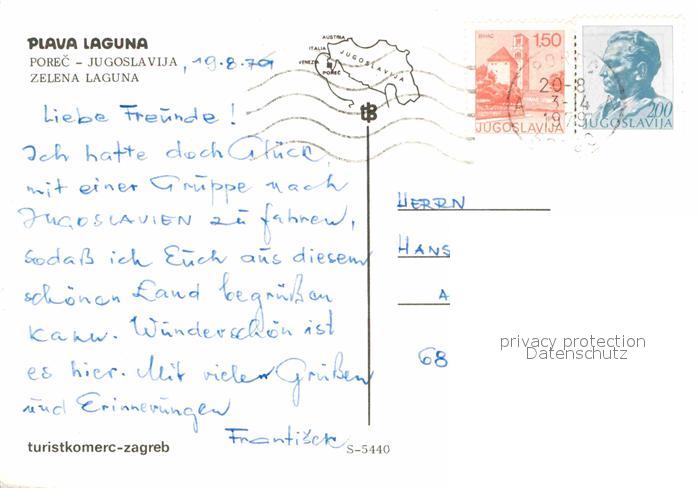 PLAVA LAGUNA
POREČ - JUGOSLAVIJA, 19.8.79
ZELENA LAGUNA
Liebe Freunde!
Ich hatte doch Glück,
mit einer Gruppe nach
JUGOSLAVIEN zu fahren,
sodaß ich Euch aus diesem
schönen Land begrüßen
kann. Wunderschön ist
es hier. Mit vielen Grüßen
und Erinnerungen
František
turistkomerc-zagreb
S-5440
AUSTRIA
ITALIA
VENEZIA
POREČ
JUGOSLAVIJA
BIHAĆ
1,50
JUGOSLAVIJA
2,00
JUGOSLAVIJA
20-8
3-14
1979
HERRN
HANS
A
68
privacy protection
Datenschutz